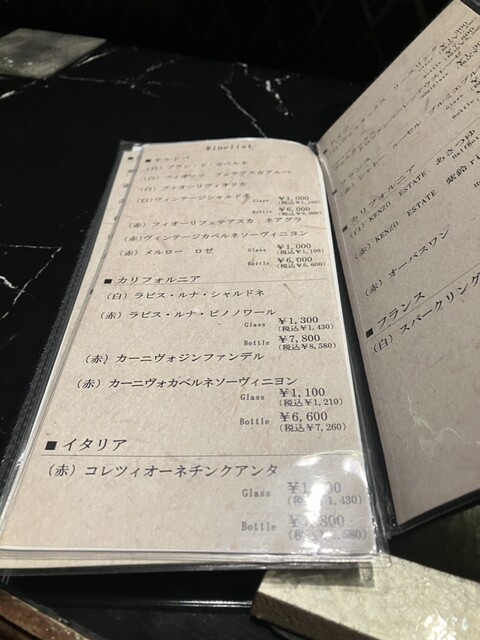 Winelist
■モルドバ
(白) ブラン・ド・カベルネ
(白) フィオーリ フェテアスカアルバ
(白) フィオーリヴィオリカ
(白) ヴィンテージシャルドネ
Glass ¥1,000
(税込¥1,100)
Bottle ¥6,000
(税込¥6,600)
(赤) フィオーリフェテアスカ ネアグラ
(赤) ヴィンテージカベルネソーヴィニヨン
(赤) メルロー ロゼ
Glass ¥1,000
(税込¥1,100)
Bottle ¥6,000
(税込¥6,600)
■カリフォルニア
(白) ラピス・ルナ・シャルドネ
(赤) ラピス・ルナ・ピノノワール
Glass ¥1,300
(税込¥1,430)
Bottle ¥7,800
(税込¥8,580)
(赤) カーニヴォジンファンデル
(赤) カーニヴォカベルネソーヴィニヨン
Glass ¥1,100
(税込¥1,210)
Bottle ¥6,600
(税込¥7,260)
■イタリア
(赤) コレツィオーネチンクアンタ
Glass
Bottle
■カリフォルニア
(白) KENZO ESTATE あさつゆ
(赤) KENZO ESTATE 紫鈴
(赤) オーパスワン
■フランス
(白) スパークリング